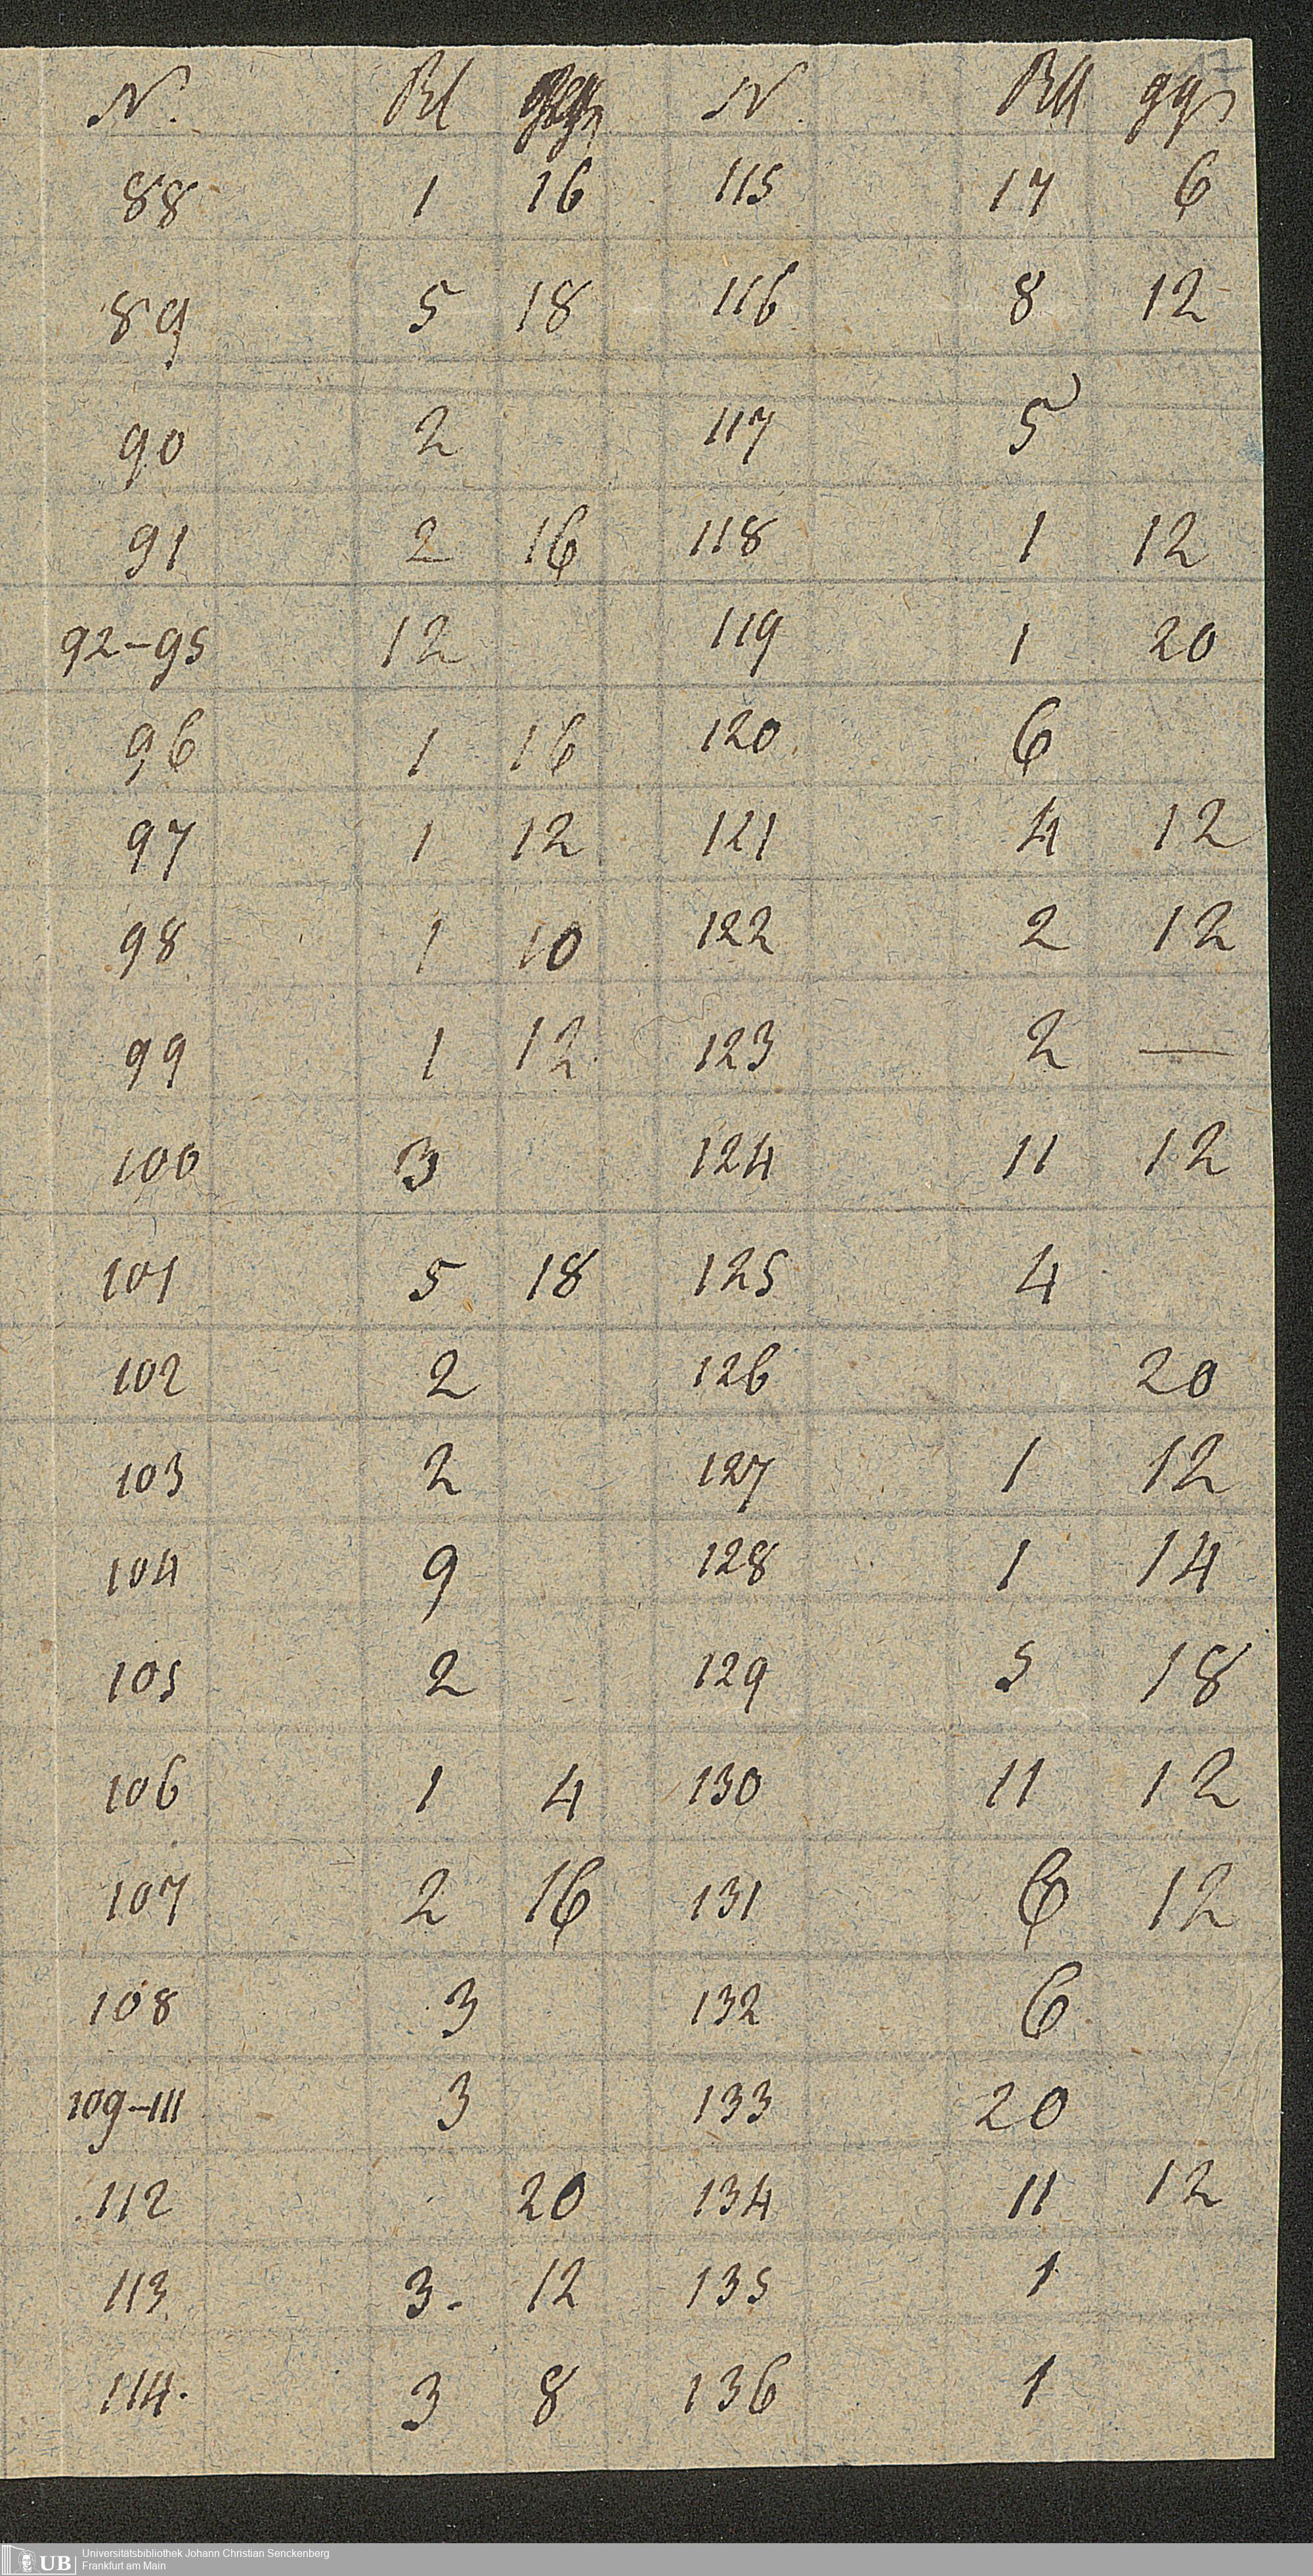 N. Rl ggr N. Rll ggr
88 1 16 115 17 6
89 5 18 116 8 12
90 2 117 5
91 2 16 118 1 12
92-95 12 119 1 20
96 1 16 120 6
97 1 12 121 4 12
98 1 10 122 2 12
99 1 12 123 2 —
100 3 124 11 12
101 5 18 125 4
102 2 126 20
103 2 127 1 12
104 9 128 1 14
105 2 129 5 18
106 1 4 130 11 12
107 2 16 131 6 12
108 3 132 6
109-111 3 133 20
112 20 134 11 12
113 3. 12 135 1
114. 3 8 136 1
UB Universitätsbibliothek Johann Christian Senckenberg
Frankfurt am Main